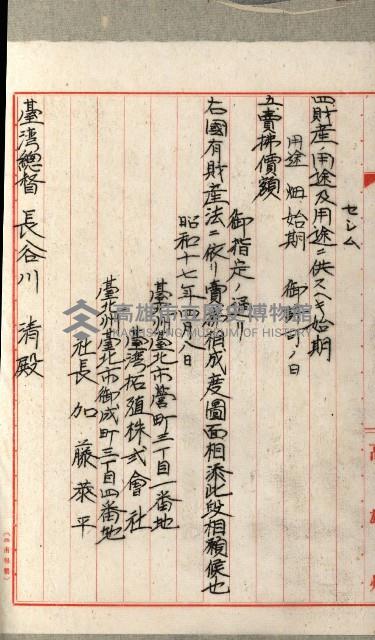 四財産ノ用途及用途ニ供スヘキ始期
セシム
用途 畑 始期 御許可ノ日
五賣拂價額
御指定ノ通リ
右國有財産法ニ依リ賣拂相成度圖面相添此段相願候也
昭和十七年四月八日
臺北州臺北市榮町三丁目一番地
臺灣拓殖株式會社
臺北州臺北市御成町三丁目四番地
社長 加藤恭平
臺湾總督 長谷川 清殿
高雄市立歷史博物館
高雄州